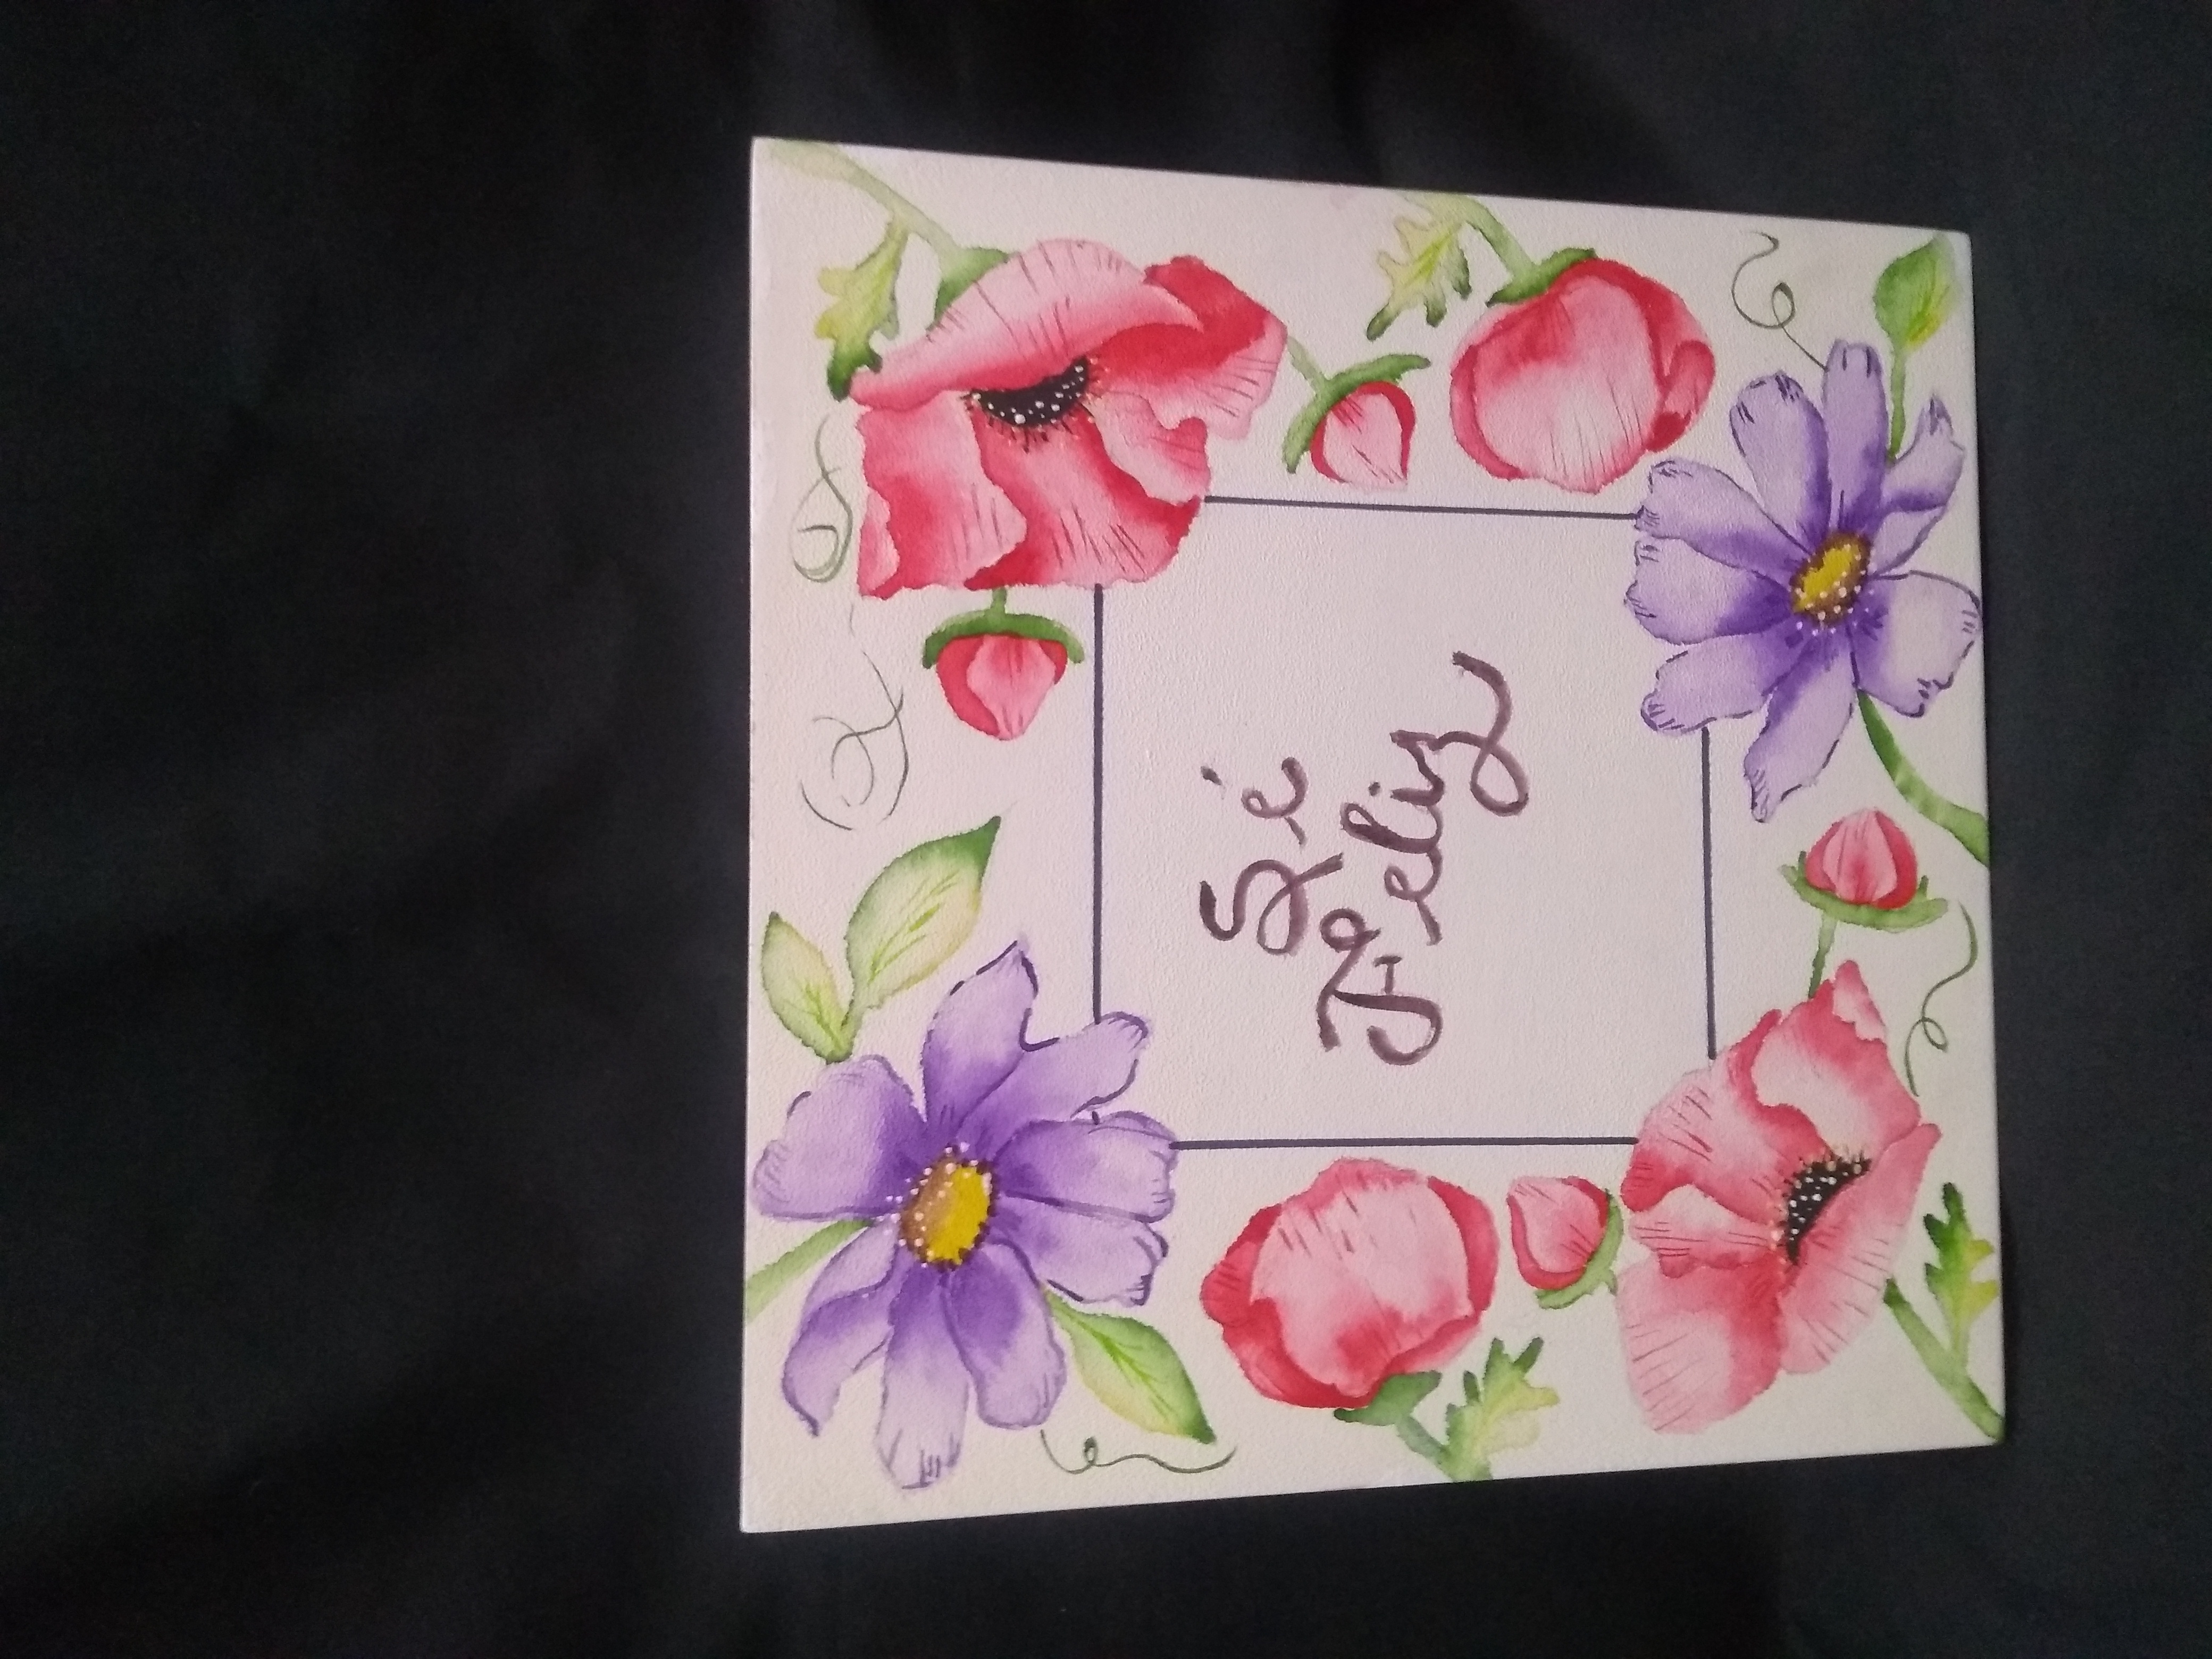 Sé
Feliz